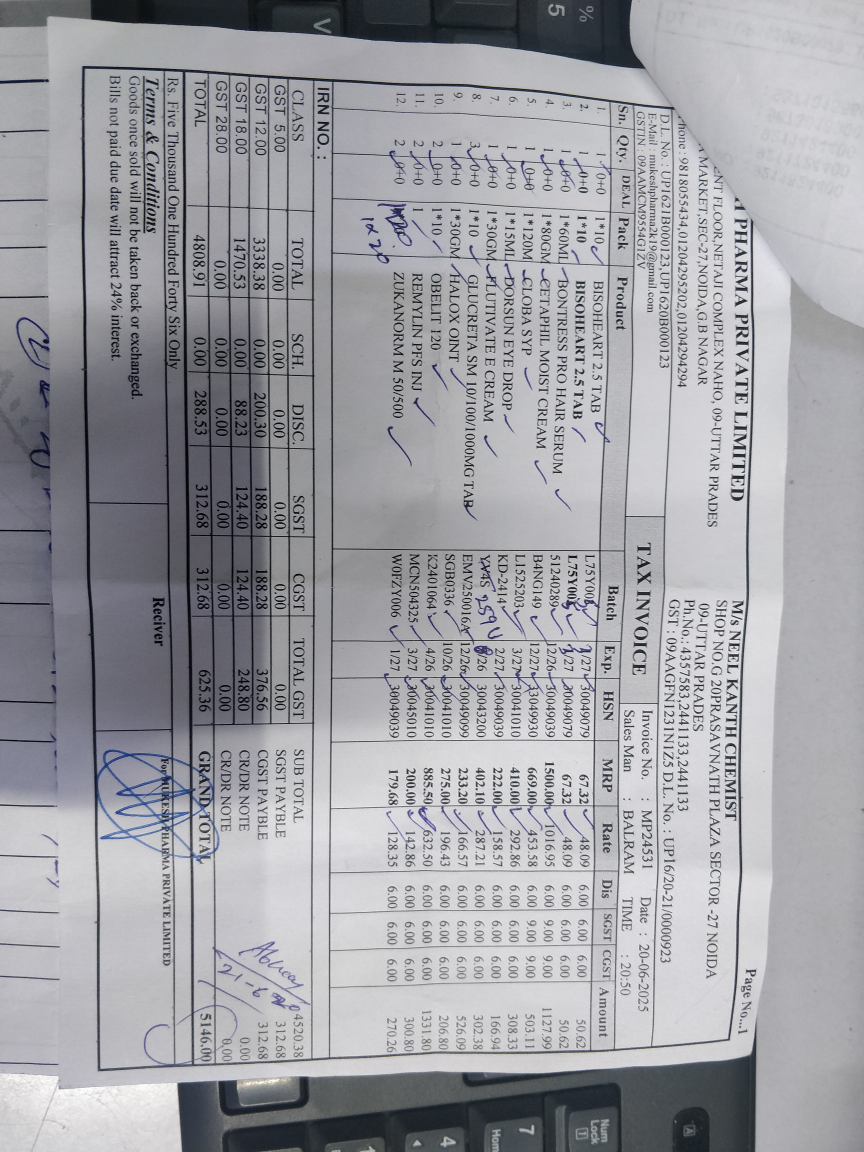 Page No...1
PHARMA PRIVATE LIMITED
FLOOR,NETAJI COMPLEX NAHO, 09-UTTAR PRADES
MARKET,SEC-27,NOIDA,G.B NAGAR
Phone : 9818055434,01204295202,01204294294
D.L. No. : UP1621B000123,UP1620B000123
E-Mail : mukeshpharma2k19@gmail.com
GSTIN : 09AAMCM9554G1ZV
TAX INVOICE
M/s NEEL KANTH CHEMIST
SHOP NO.G 20PRASAVNATH PLAZA SECTOR -27 NOIDA
09-UTTAR PRADES
Ph.No.: 4357583,2441133,2441133
GST : 09AAGFN1231N1Z5 D.L. No. : UP16/20-21/0000923
Invoice No. : MP24531 Date : 20-06-2025
Sales Man : BALRAM TIME : 20:50
Sn. Qty. DEAL Pack Product Batch Exp. HSN MRP Rate Dis SGST CGST Amount
1. 1 0+0 1*10 BISOHEART 2.5 TAB L75Y005 1/27 30049079 67.32 48.09 6.00 6.00 6.00 50.62
2. 1 0+0 1*10 BISOHEART 2.5 TAB L75Y005 1/27 30049079 67.32 48.09 6.00 6.00 6.00 50.62
3. 1 0+0 1*60ML BONTRESS PRO HAIR SERUM 51240289 12/26 30049039 1500.00 1016.95 6.00 9.00 9.00 1127.99
4. 1 0+0 1*80GM CETAPHIL MOIST CREAM B4NG149 12/27 33049930 669.00 453.58 6.00 9.00 9.00 503.11
5. 1 0+0 1*120M CLOBA SYP L1525203 3/27 30041010 410.00 292.86 6.00 6.00 6.00 308.33
6. 1 0+0 1*15ML DORSUN EYE DROP KD-2414 2/27 30049039 222.00 158.57 6.00 6.00 6.00 166.94
7. 1 0+0 1*30GM FLUTIVATE E CREAM 8/26 30043200 402.10 287.21 6.00 6.00 6.00 302.38
8. 3 0+0 1*10 GLUCRETA SM 10/100/1000MG TAB EMV250016A 12/26 30049099 233.20 166.57 6.00 6.00 6.00 526.09
9. 1 0+0 1*30GM HALOX OINT SGB0336 10/26 30041010 275.00 196.43 6.00 6.00 6.00 206.80
10. 2 0+0 1*10 OBELIT 120 K2401064 4/26 30041010 885.50 632.50 6.00 6.00 6.00 1331.80
11. 2 0+0 1 REMYLIN PFS INJ MCN504325 3/27 30045010 200.00 142.86 6.00 6.00 6.00 300.80
12. 2 0+0 ZUKANORM M 50/500 W0FZY006 1/27 30049039 179.68 128.35 6.00 6.00 6.00 270.26
1x20
IRN NO. :
CLASS TOTAL SCH. DISC. SGST CGST TOTAL GST
GST 5.00 0.00 0.00 0.00 0.00 0.00 0.00
GST 12.00 3338.38 0.00 200.30 188.28 188.28 376.56
GST 18.00 1470.53 0.00 88.23 124.40 124.40 248.80
GST 28.00 0.00 0.00 0.00 0.00 0.00 0.00
TOTAL 4808.91 0.00 288.53 312.68 312.68 625.36
SUB TOTAL 4520.38
SGST PAYBLE 312.68
CGST PAYBLE 312.68
CR/DR NOTE 0.00
CR/DR NOTE 0.00
GRAND TOTAL 5146.00
Rs. Five Thousand One Hundred Forty Six Only
Terms & Conditions
Goods once sold will not be taken back or exchanged.
Bills not paid due date will attract 24% interest.
Reciver
For MUKESH PHARMA PRIVATE LIMITED
%
5
V
Num
Lock
1
7
Home
4